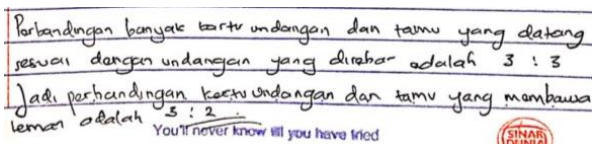 Perbandingan banyak kartu undangan dan tamu yang datang
sesuai dengan undangan yang disebar adalah 3 : 3
Jadi perbandingan kartu undangan dan tamu yang membawa
teman adalah 3 : 2 .
You'll never know till you have tried
SINAR
DUNIA